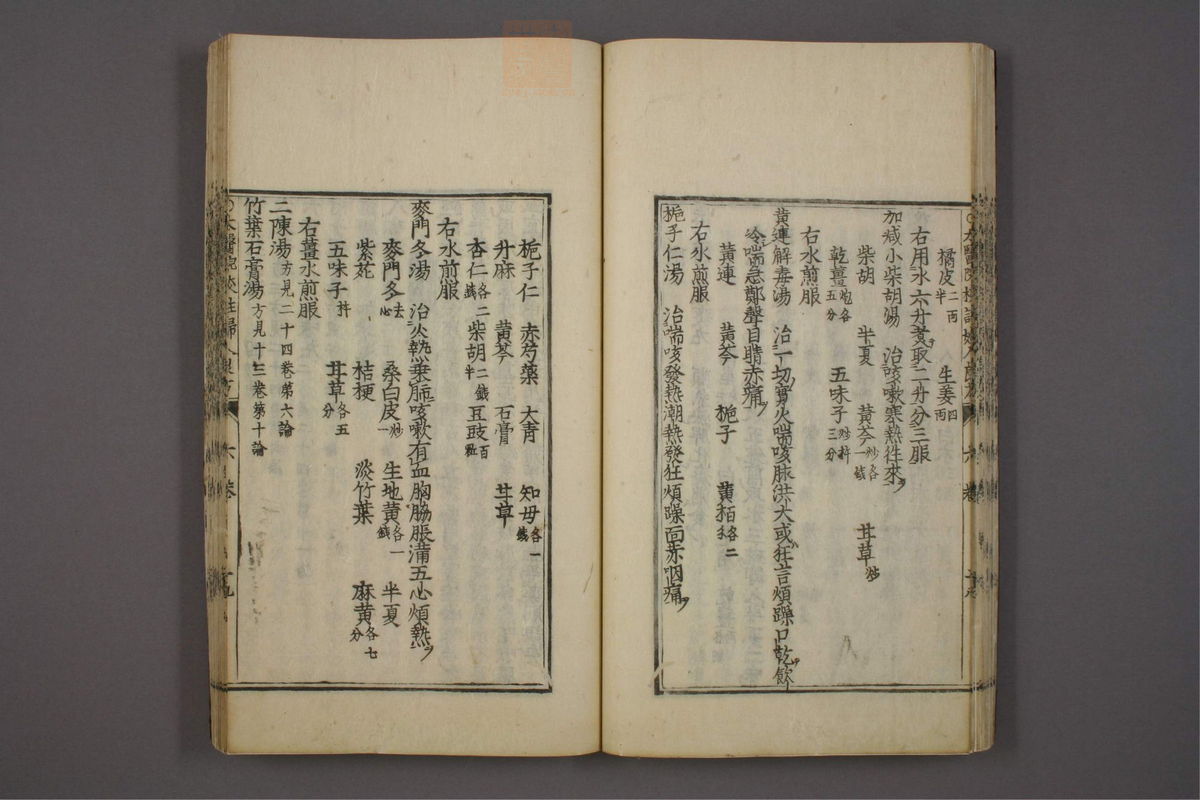 橘皮二兩半　生姜四兩
右用水六升煮取二升分三服
加减小柴胡湯　治咳嗽寒熱徃來
柴胡　半夏　黄芩炒各一錢　甘草炒
乾薑炮各五分　五味子炒杵三分
右水煎服
黄連解毒湯　治一切實火喘咳脉洪大或狂言煩躁口乾飲
冷喘急鄭聲目睛赤痛
黄連　黄芩　梔子　黄栢各二
右水煎服
梔子仁湯　治喘咳發熱潮熱發狂煩躁面赤咽痛
梔子仁　赤芍藥　大青　知母各一錢
升麻　黄芩　石膏　甘草
杏仁各二錢　柴胡二錢半　豆豉百粒
右水煎服
麥門冬湯　治火熱乗肺咳嗽有血胸脇脹滿五心煩熱
麥門冬去心　桑白皮炒一　生地黄各一錢　半夏
紫菀　桔梗　淡竹葉　麻黄各七分
五味子杵　甘草各五分
右薑水煎服
二陳湯方見二十四卷第六論
竹葉石膏湯方見十三卷第十論
太醫院校註婦人良方　六卷